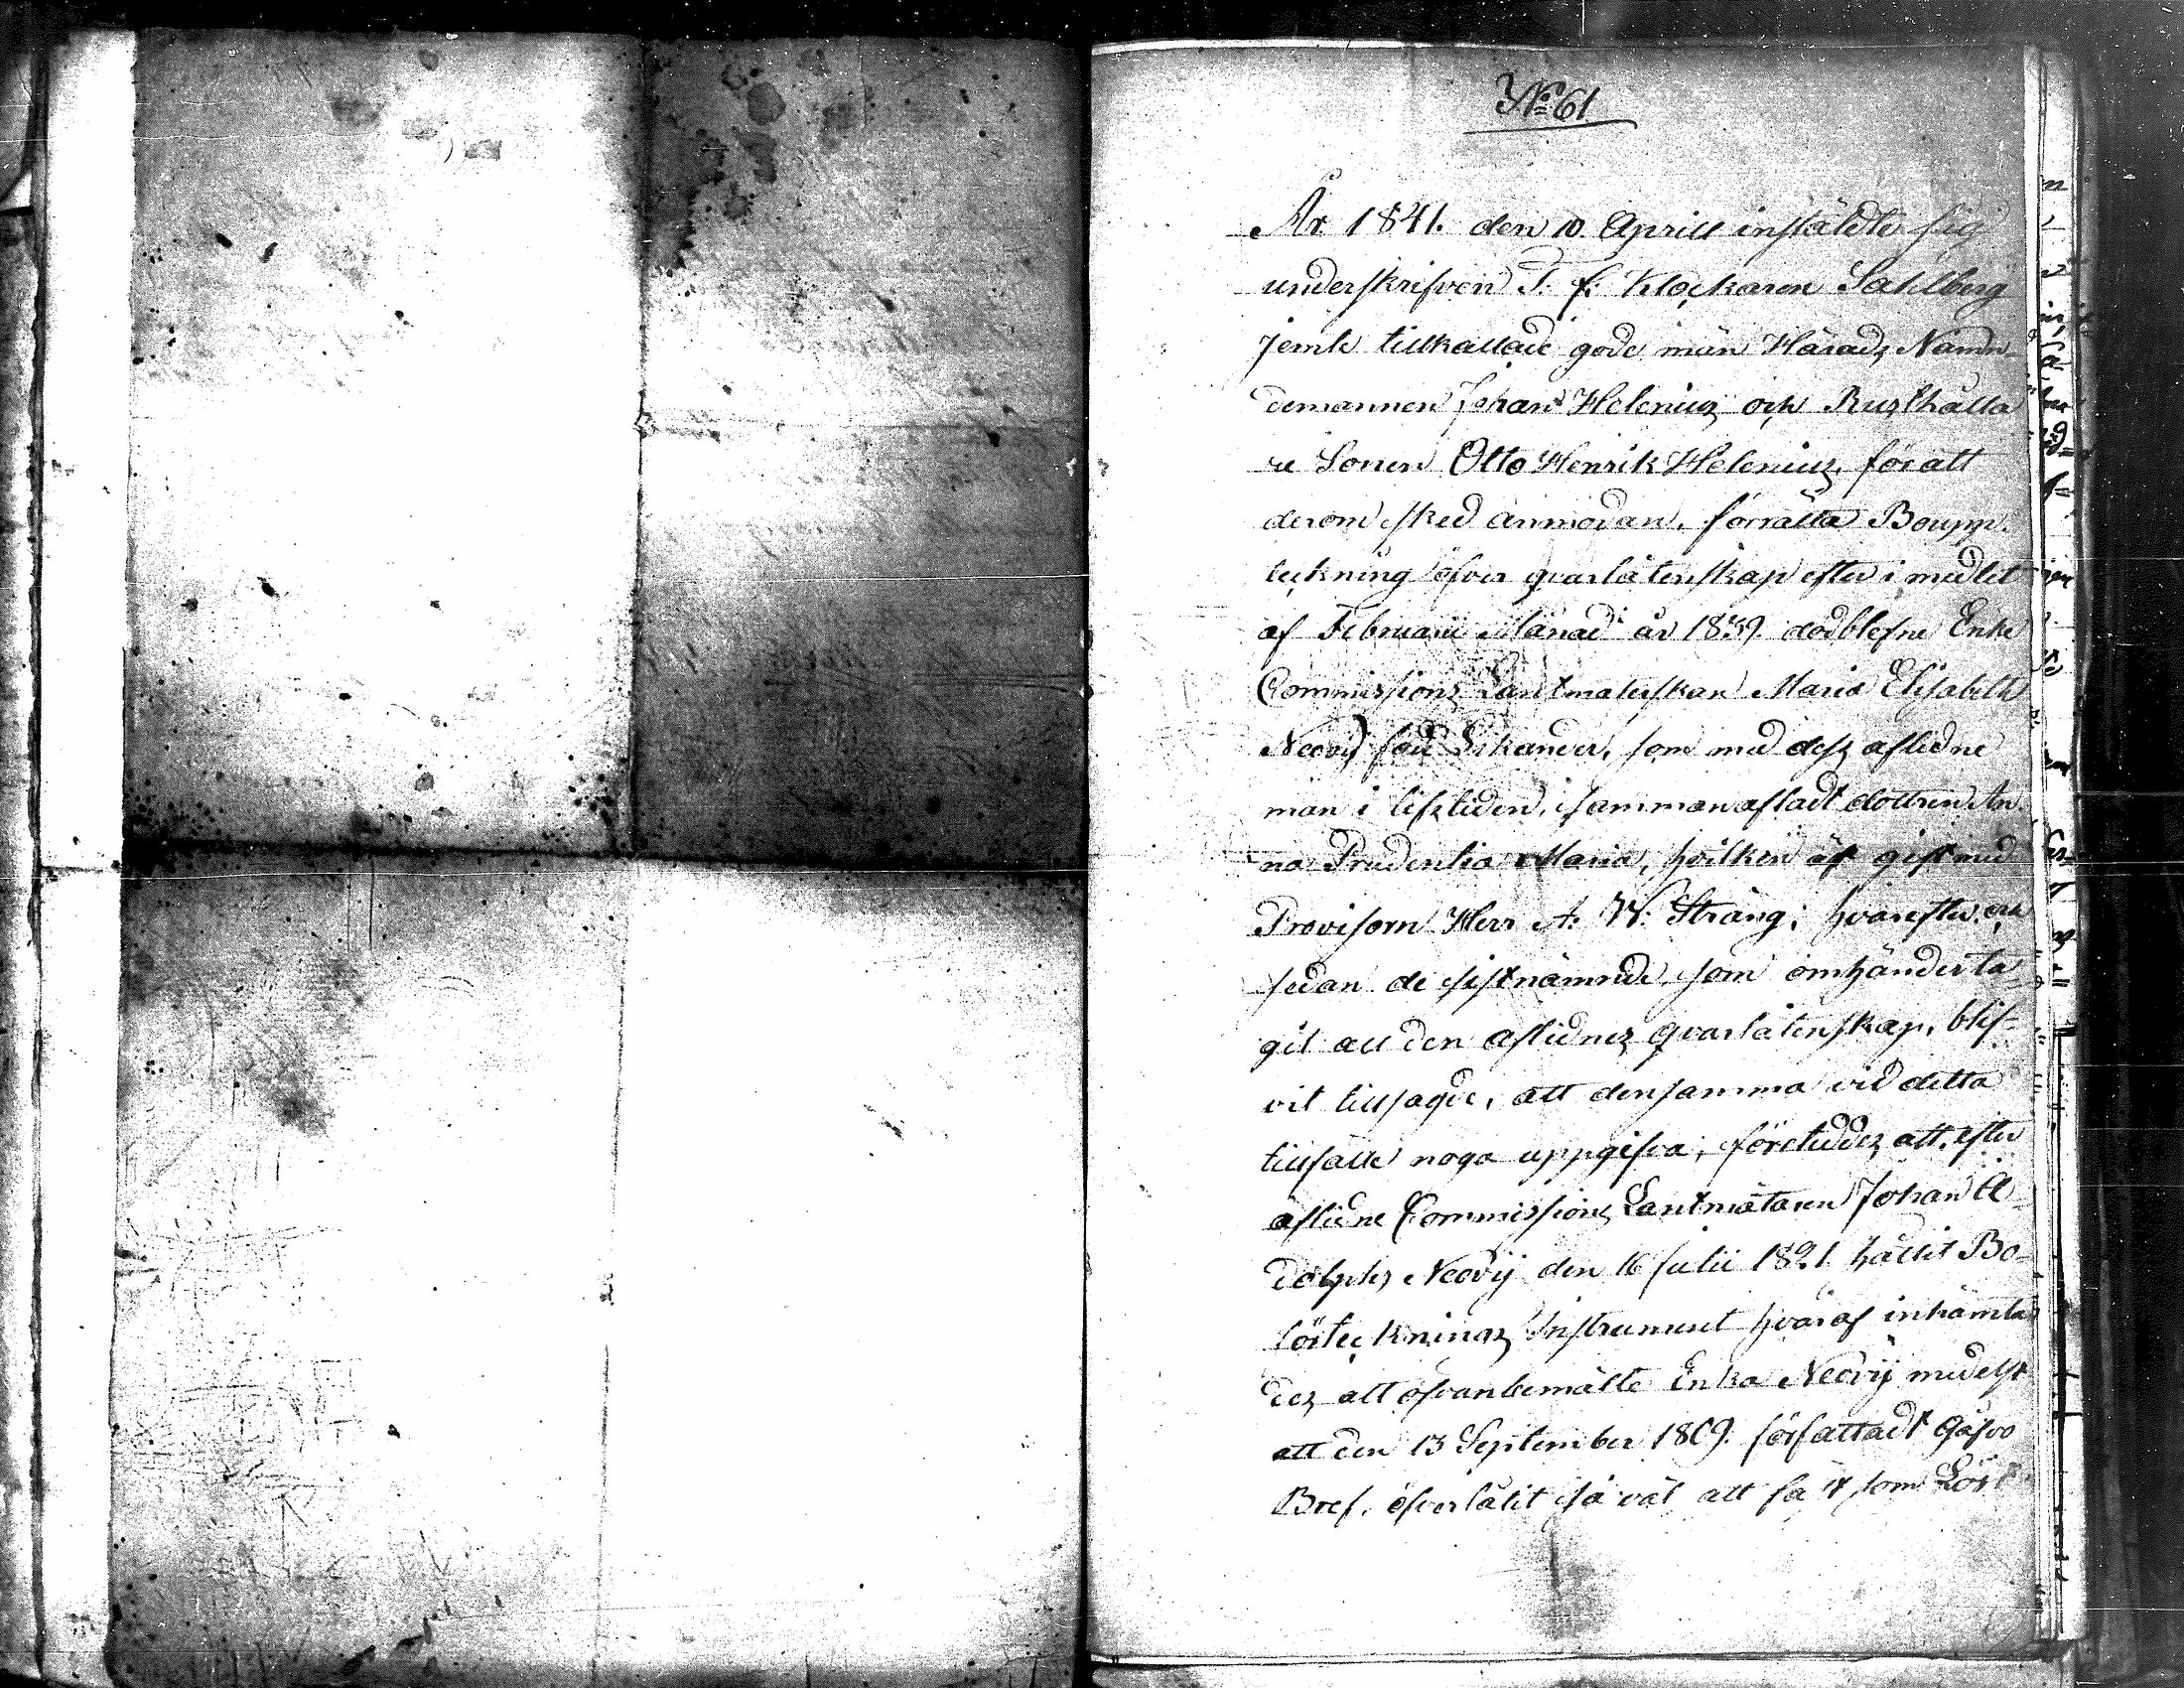 No 61
År 1841. den 10 Aprill instäldte sig
underskrifven T. f. Klockaren Sahlberg
jemte tillkallade gode män Härads Nämn-
demannen Johan Helenius och Rusthålla
re Sonen Otto Henrik Helenius, för att
derom sked anmodan, förrätta Boupp-
teckning öfver qvarlåtenskap efter i medlet
af Februarii Månad år 1839 dödblefne Enke
Commissions Lantmäterskan Maria Elisabeth
Neovij född Sikander, som med dess aflidne
man i lifstiden, sammanafladt dottren An
na Prudentia Maria, hvilken är gift med
Provisorn Herr A: W: Strång; hvarefter och
sedan de sistnämnde, som omhänderta
git all den aflidnes qvarlåtenskap, blif-
vit tillsagde, att densamma vid detta
tillfälle noga uppgifva; företeddes att efter
aflidne Commissions Lantmätaren Johan A
dolphs Neovij den 16 Julii 1821 hållit Bo-
förtecknings Instrument hvaraf inhämta
des att ofvanbemälte Enka Neovij medelst
ett den 13 September 1809. författadt Gåfvo
Bref, öfverlåtit så väl all fast som Lös